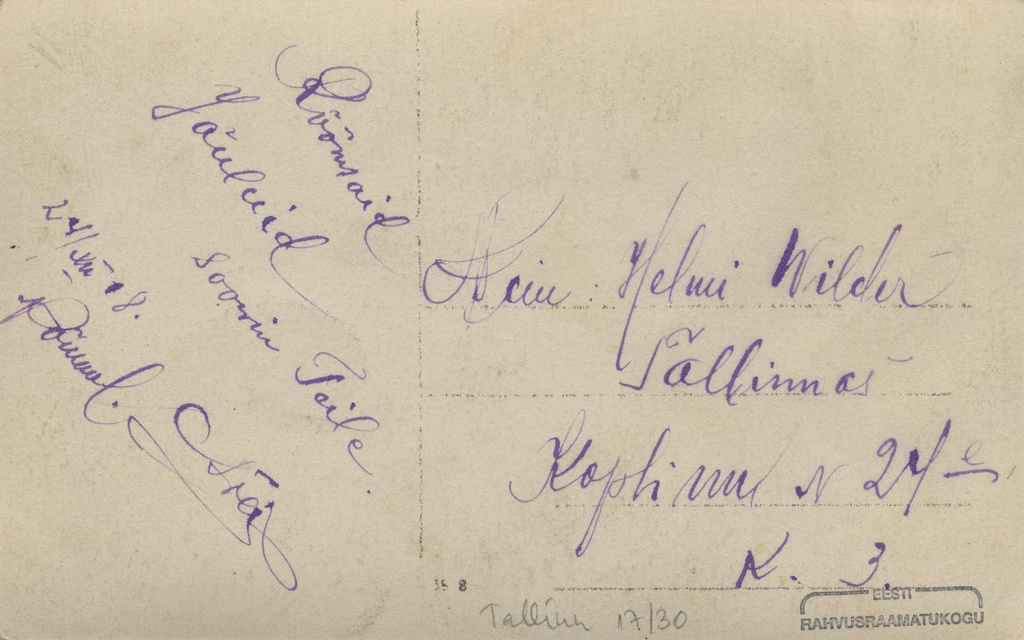 Rõõmsaid
Jõuluid
soovin Teile.
24/XII 18.
Prein: Helmi Wilder
Tallinnas
Kopli uul N 24 e
K. 3.
36 8
Tallinn 17/30
EESTI
RAHVUSRAAMATUKOGU